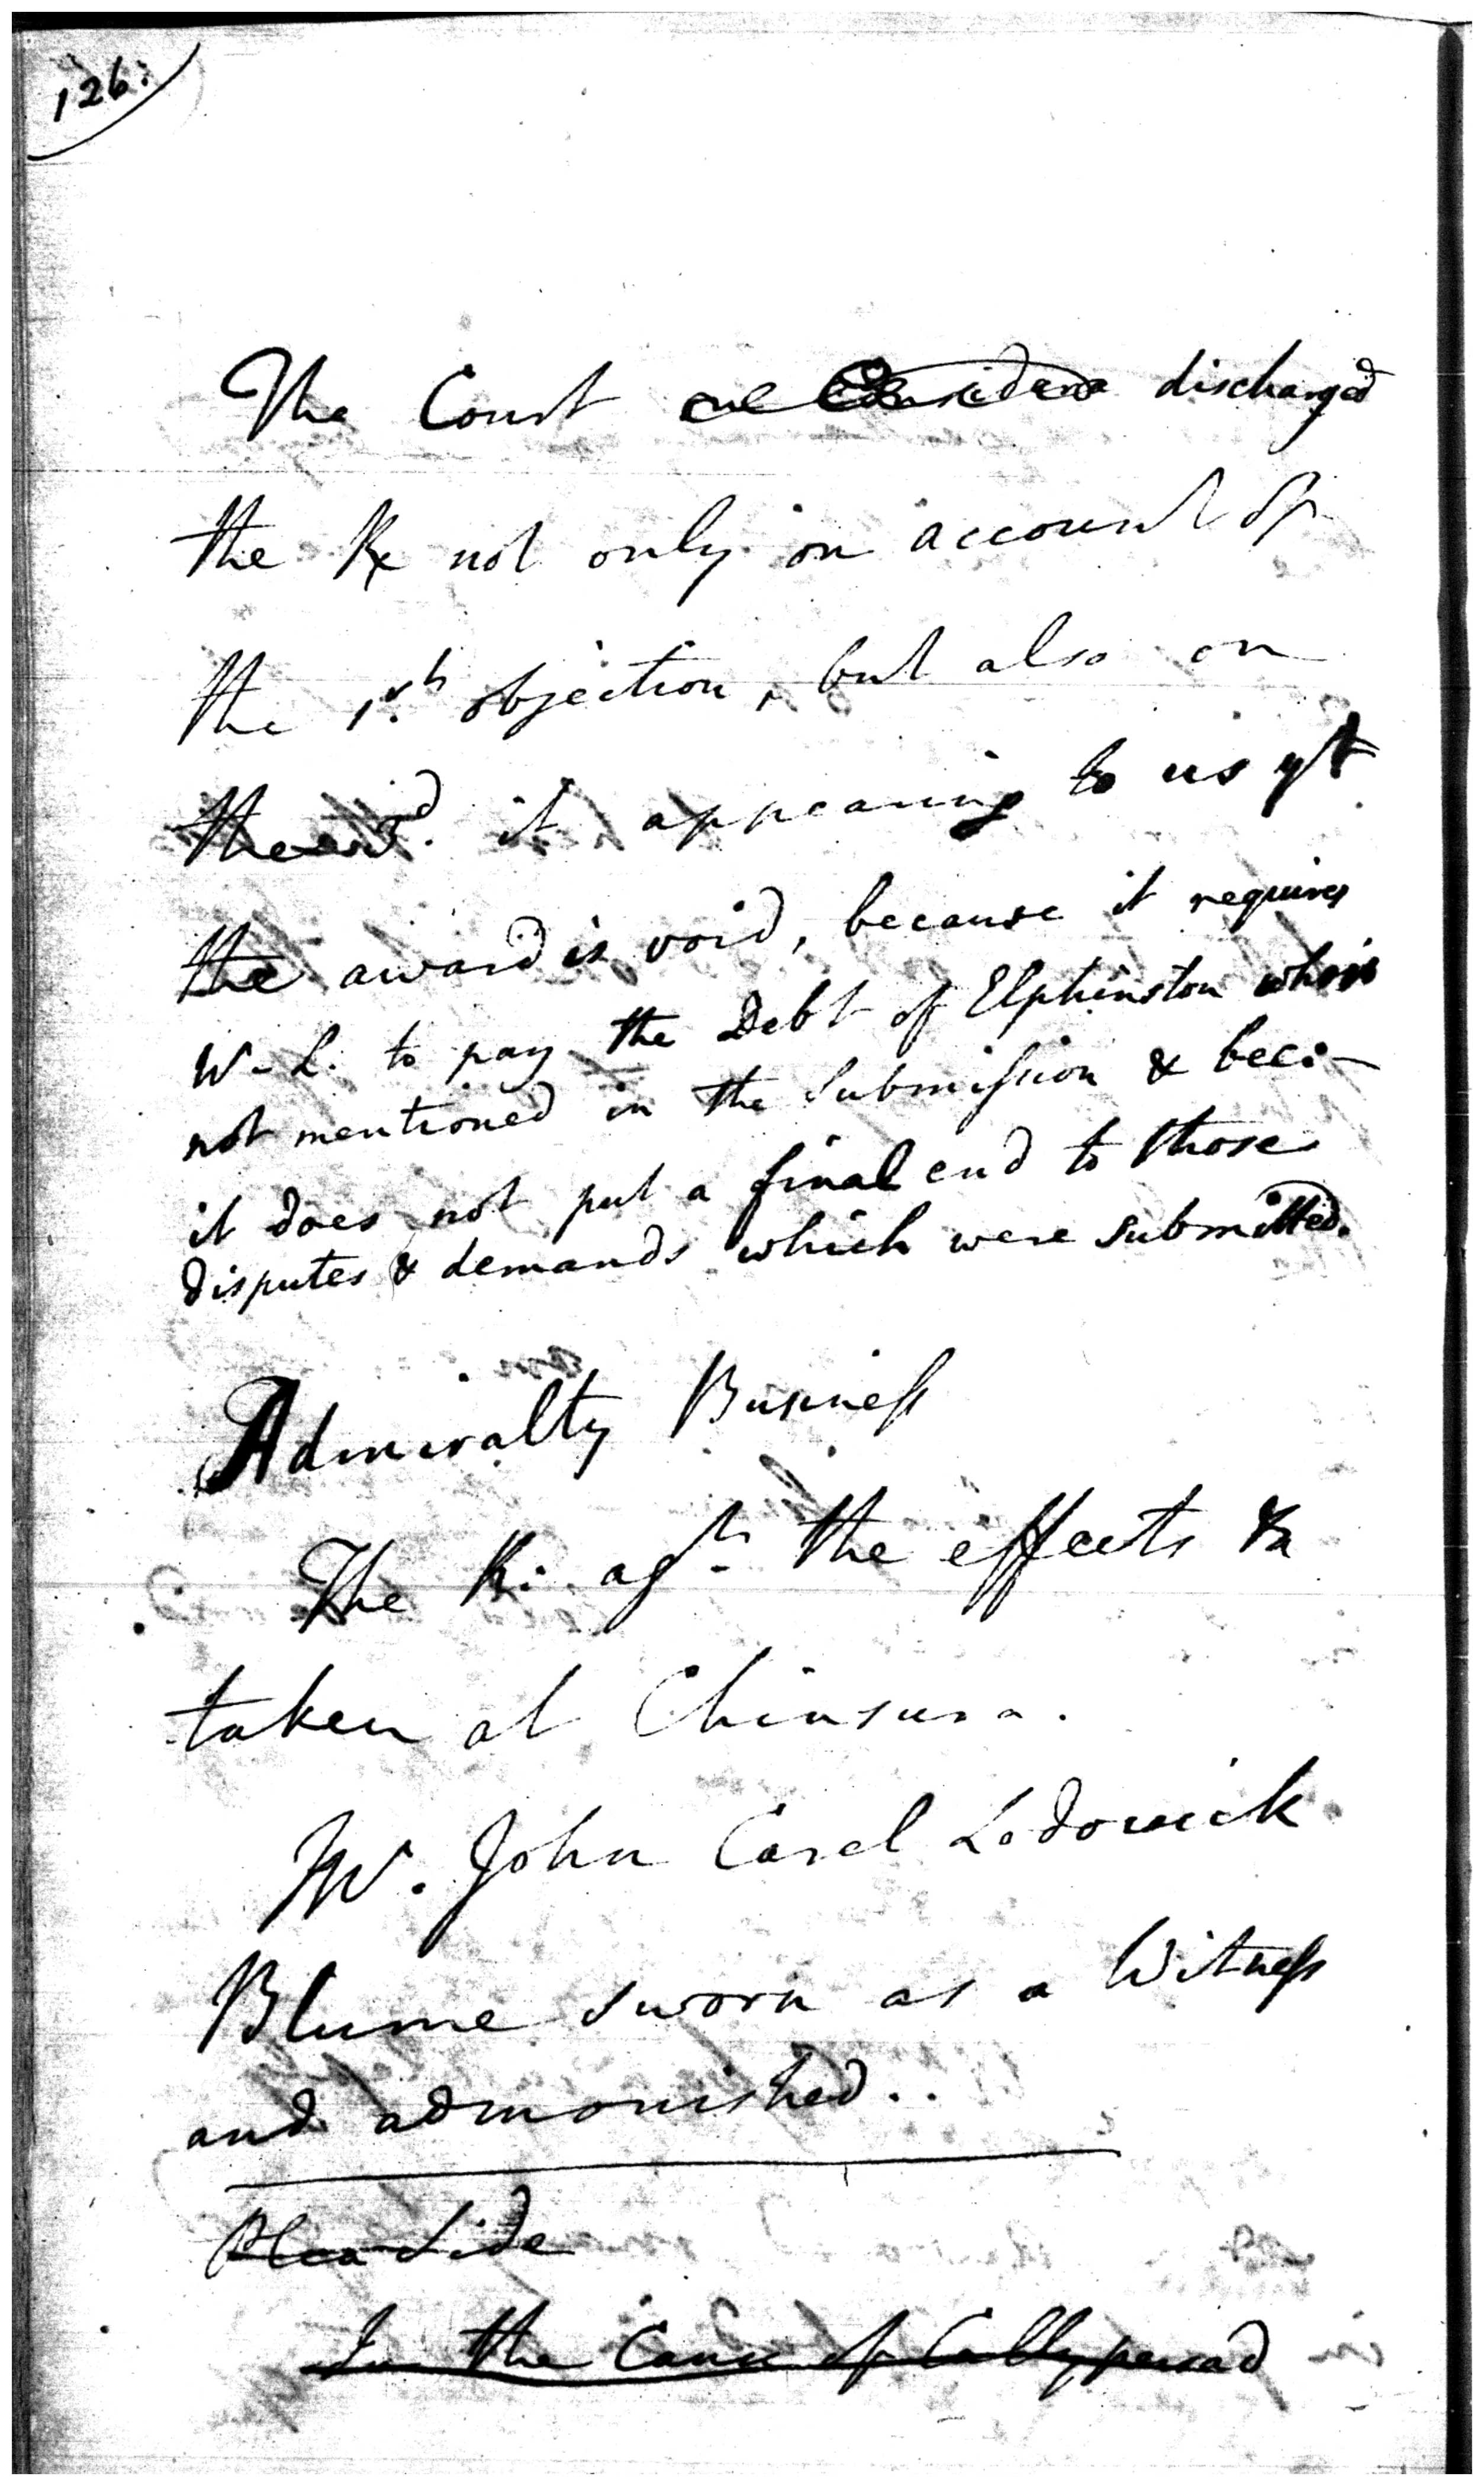 126.
The Court discharged
the Re not only on account of
the 1st objection, but also on
the 3d. it appearing to us yt
the award is void, because it requires
W. L. to pay the Debt of Elphinston who is
not mentioned in the Submission & beca
it does not put a final end to those
disputes & demands which were submitted.
Admiralty Business
The K. agst the effects &a
taken at Chinsura.
Mr. John Carel Lodowick
Blume sworn as a Witness
and admonished..
Plea Side
In the Cause of Callypersad